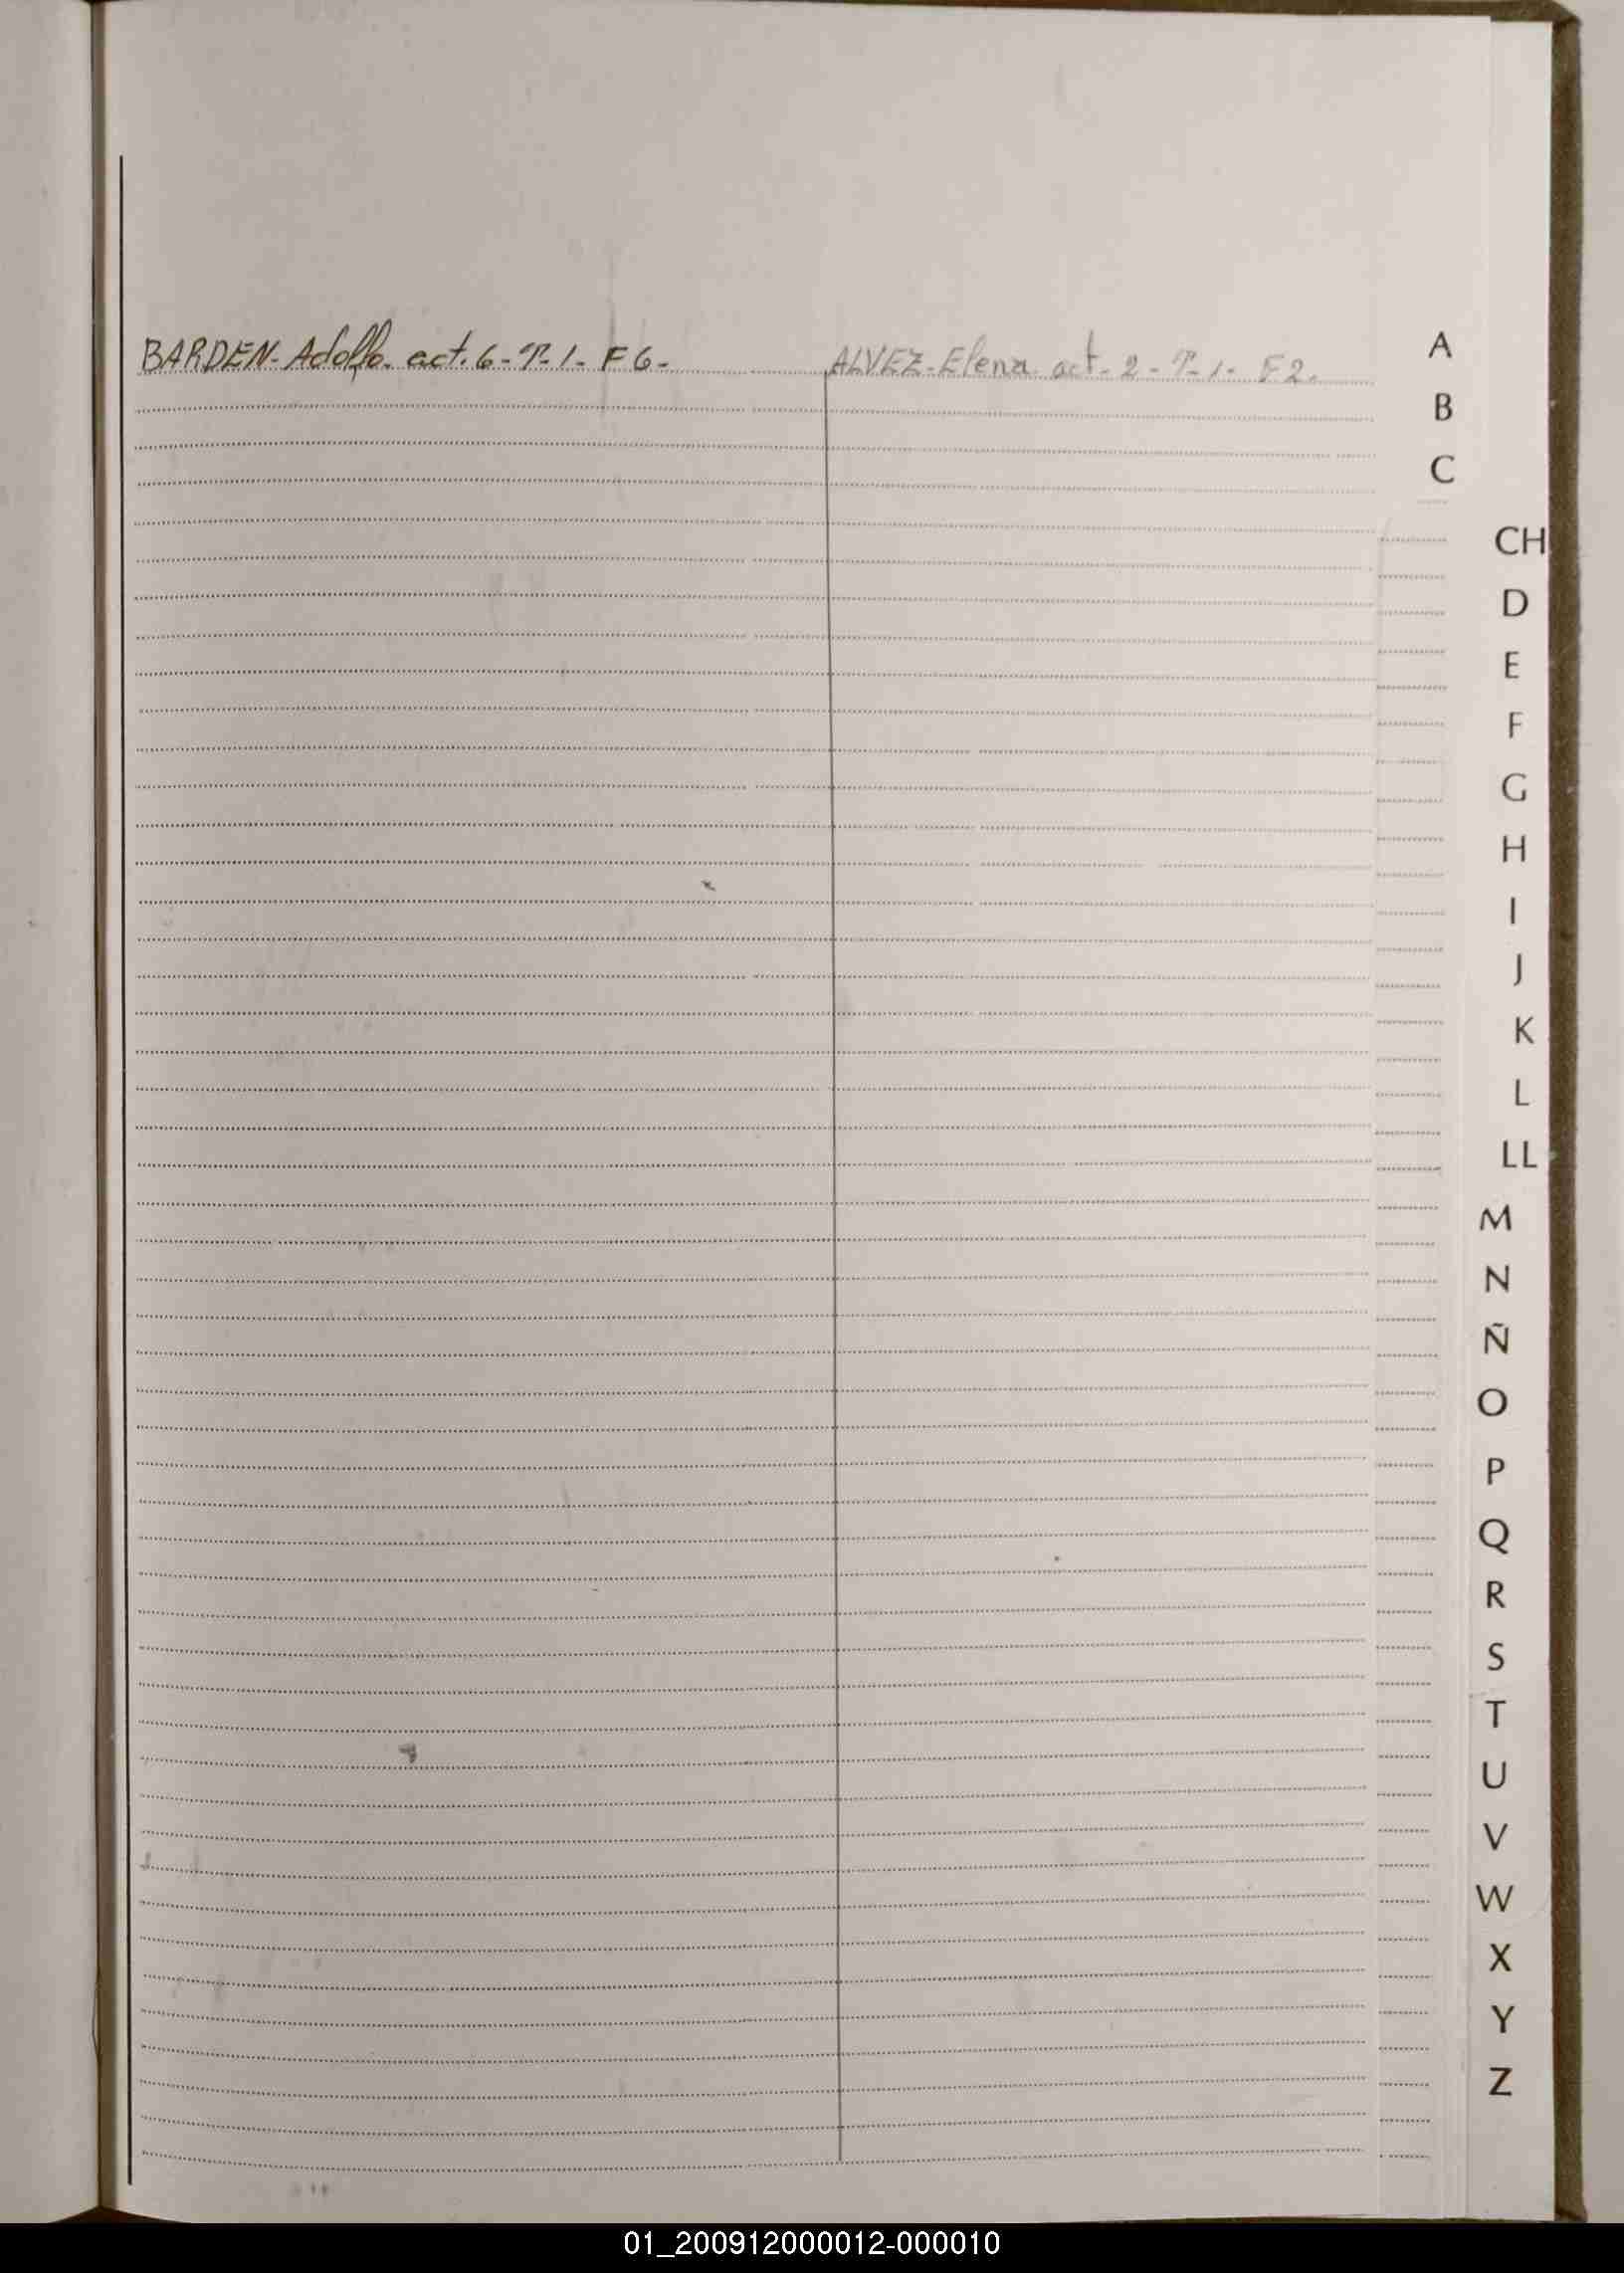 BARDEN- Adolfo. act. 6- T- 1- F 6-
ALVEZ-Elena. act- 2- T- 1- F 2.
A
B
C
CH
D
E
F
G
H
I
J
K
L
LL
M
N
Ñ
O
P
Q
R
S
T
U
V
W
X
Y
Z
01_200912000012-000010